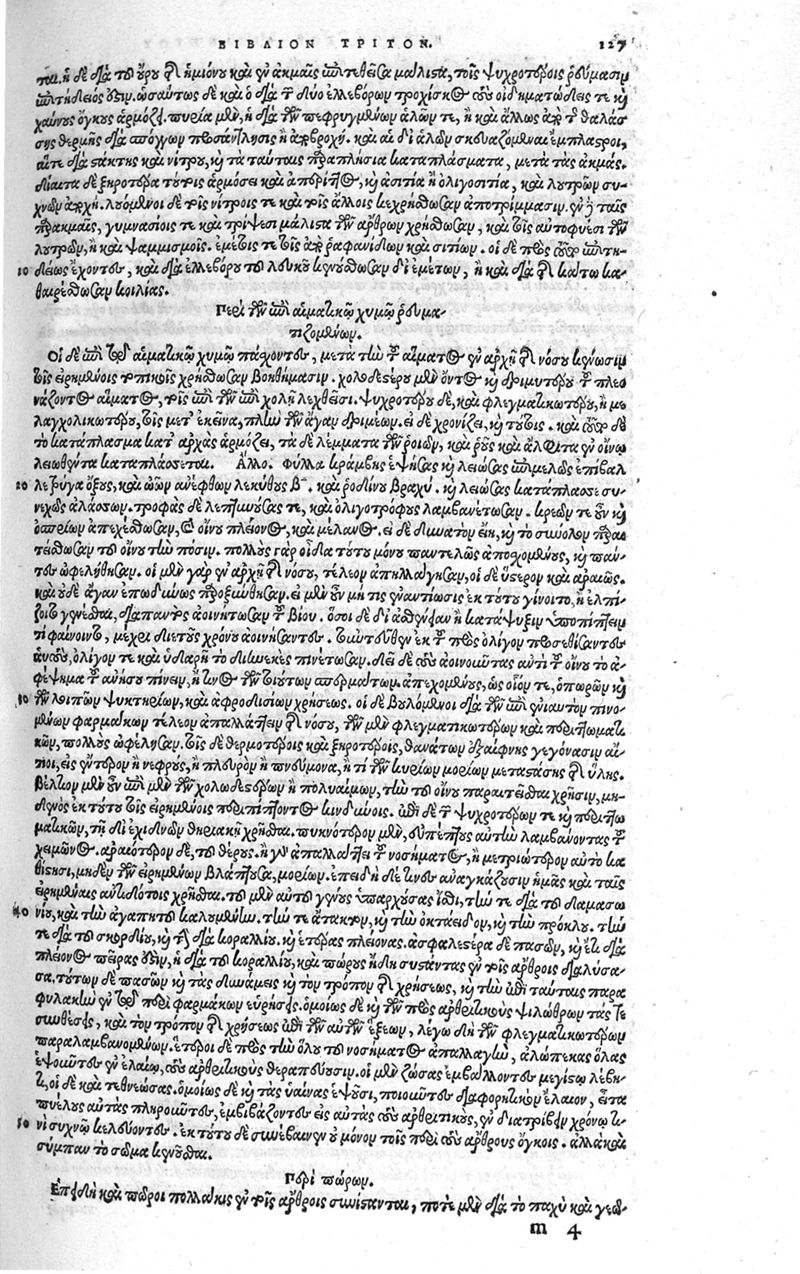 ΒΙΒΛΙΟΝ ΤΡΙΤΟΝ. 127
ται. ἡ δὲ διὰ τοῦ οὔρου τῆς ἡμιόνου καὶ ἐν ἀκμαῖς ἐπιτεθεῖσα μάλιστα, τοῖς ψυχροτέροις ῥεύμασιν
ἐπιτήδειός ἐστιν. ὡσαύτως δὲ καὶ ὁ διὰ τῶν δύο ἐλλεβόρων τροχίσκος τοὺς οἰδηματώδεις τε καὶ
χαύνους ὄγκους ἁρμόζει. πυρία μὲν, ἡ διὰ τῶν πεφρυγμένων ἁλῶν τε, ἢ καὶ ἄλλως ἀπὸ τῆς θαλάσ
σης θερμῆς διὰ σπόγγων προσάντλησις ἢ ἀποβροχή. καὶ αἱ δι' ἁλῶν σκευαζόμεναι ἔμπλαστροι,
αἵτε διὰ στάκτης καὶ νίτρου, καὶ τὰ ταύταις παραπλήσια καταπλάσματα, μετὰ τὰς ἀκμάς.
δίαιτα δὲ ξηροτέρα τούτοις ἁρμόσει καὶ ἀπέριττος, καὶ ἀσιτία ἢ ὀλιγοσιτία, καὶ λουτρῶν συ-
χνῶν ἀποχή. λουόμενοι δὲ τοῖς νίτροις τε καὶ τοῖς ἄλλοις κεχρήσθωσαν ἀποτρίμμασιν. ἐν δὲ ταῖς
παρακμαῖς, γυμνασίοις τε καὶ τρίψεσι μάλιστα τῶν ἄρθρων χρήσθωσαν, καὶ τοῖς αὐτοφυέσι τῶν
λουτρῶν, ἢ καὶ ψαμμισμοῖς. ἐμέτοις τε τοῖς ἀπὸ ῥαφανίδων καὶ σιτίων. οἱ δὲ πρὸς τοῦτο ἐπιτη-
10 δείως ἔχοντες, καὶ διὰ ἐλλεβόρου τοῦ λευκοῦ κενούσθωσαν δι' ἐμέτων, ἢ καὶ διὰ τῆς κάτω κα-
θαιρέσθωσαν κοιλίας.
Περὶ τῶν ἐπὶ αἱματικῷ χυμῷ ῥευμα-
τιζομένων.
Οἱ δὲ ἐπὶ τῷ αἱματικῷ χυμῷ πάσχοντες, μετὰ τὴν τοῦ αἵματος ἐν ἀρχῇ τῆς νόσου κένωσιν
τοῖς εἰρημένοις τοπικοῖς χρήσθωσαν βοηθήμασιν. χολωδεστέρου μὲν ὄντος καὶ δριμυτέρου τοῦ πλεο
νάζοντος αἵματος, τοῖς ἐπὶ τῶν ἐπὶ χολῇ λεχθεῖσι. ψυχροτέρου δὲ, καὶ φλεγματικωτέρου, ἢ με
λαγχολικωτέρου, τοῖς μετ' ἐκεῖνα, πλὴν τῶν ἄγαν δριμέων. εἰ δὲ χρονίζει, καὶ τούτοις. καὶ τοῦτο δὲ
τὸ κατάπλασμα κατ' ἀρχὰς ἁρμόζει, τὰ δὲ λέμματα τῶν ῥοιῶν, καὶ ῥοῦς καὶ ἄλφιτα ἐν οἴνῳ
λειωθέντα καταπλάσσεται. Ἄλλο. φύλλα κράμβης ἑψήσας καὶ λειώσας ἐπιμελῶς ἐπίβαλ
20 λε τρύγα ὄξους, καὶ ὠῶν ἀνέφθων λεκύθους β". καὶ ῥοδίνου βραχύ. καὶ λειώσας κατάπλασσε συ-
νεχῶς ἀλάσσων. τροφὰς δὲ λεπτυνούσας τε, καὶ ὀλιγοτρόφους λαμβανέτωσαν. κρεῶν τε οὖν καὶ
ὀσπρίων ἀπεχέσθωσαν, καὶ οἴνου πλείονος, καὶ μέλανος. εἰ δὲ δυνατὸν εἴη, καὶ τὸ σύνολον παραι
τείσθωσαν τοῦ οἴνου τὴν πόσιν. πολλοὺς γὰρ οἶδα τούτου μόνου παντελῶς ἀποσχομένους, καὶ παύ-
τως ὠφελήθησαν. οἱ μὲν γὰρ ἐν ἀρχῇ τῆς νόσου, τέλεον ἀπηλλάγησαν, οἱ δὲ ὕστερον καὶ ἀραιῶς.
καὶ οὐδὲ ἄγαν ἐπωδύνως παρωξύνθησαν. εἰ μὲν οὖν μή τις ἐναντίωσις ἐκ τούτου γίνοιτο, ἢ ἐλπί-
ζοιτο γενέσθαι, διαπαντὸς ἀοινήτωσαν τοῦ βίου. ὅσοι δὲ δι' ἀσθένειαν ἢ κατάψυξιν ὑποπίπτειν
τι φαίνοιντο, μέχρι διετοῦς χρόνου ἀοινήσαντες. ἐντεῦθεν ἐκ τοῦ πρὸς ὀλίγον προσεθίσαντες
ἑαυτοὺς, ὀλίγον τε καὶ ὑδαρῆ τὸ διηνεκὲς πινέτωσαν. δεῖ δὲ τοὺς ἀοινοῦντας ἀντὶ τοῦ οἴνου τὸ ἀ-
φέψημα τοῦ ἀνήσου πίνειν, ἤ τινος τῶν τοιούτων σπερμάτων. ἀπεχομένους, ὡς οἷόν τε, ὀπωρῶν καὶ
30 τῶν λοιπῶν ψυκτηρίων, καὶ ἀφροδισίων χρήσεως. οἱ δὲ βουλόμενοι διὰ τῶν ἐπὶ ἐνιαυτὸν πινο-
μένων φαρμάκων τέλεον ἀπαλλάττειν τῆς νόσου, τῶν μὲν φλεγματικωτέρων καὶ περιττωματι
κῶν, πολλοὺς ὠφέλησαν. τοῖς δὲ θερμοτέροις καὶ ξηροτέροις, θανάτων ἐξαίφνης γεγόνασιν αἴ-
τιοι, εἰς ἔντερον ἢ νεφροὺς, ἢ πλευρὸν ἢ πνεύμονα, ἤ τι τῶν κυρίων μορίων μεταστάσης τῆς ὕλης.
βέλτιον μὲν οὖν ἐπὶ μὲν τῶν χολωδεστέρων ἢ πολυαίμων, τὴν τοῦ οἴνου παραιτεῖσθαι χρῆσιν, μη-
δενὸς ἐκ τούτου τοῖς εἰρημένοις περιπίπτοντος κινδύνοις. ἐπὶ δὲ τῶν ψυχροτέρων τε καὶ περιττω
ματικῶν, τῇ δι' ἐχιδνῶν θηριακῇ χρῆσθαι. πυκνότερον μὲν, εὐπέπτους αὐτὴν λαμβάνοντας τοῦ
χειμῶνος. ἀραιότερον δὲ, τοῦ θέρους. ἢ γὰρ ἀπαλλάττει τοῦ νοσήματος, ἢ μετριώτερον αὐτὸ κα
θίστησι, μηδὲν τῶν εἰρημένων βλάπτουσα μορίων. ἐπειδὴ δέ τινες ἀναγκάζουσιν ἡμᾶς καὶ ταῖς
εἰρημέναις ἀντιδότοις χρῆσθαι. τοῦ μὲν αὐτοῦ γένους ὑπαρχούσας ἴσθι, τήν τε διὰ τοῦ δαμασω
40 νίου, καὶ τὴν ἀγαπητὸ καλουμένην. τήν τε ἄτακτον, καὶ τὴν ὀκτάειδον, καὶ τὴν πρόκλου. τήν
τε διὰ τοῦ σκορδίου, καὶ τὴν διὰ κοραλλίου. καὶ ἑτέρας πλείονας. ἀσφαλεστέρα δὲ πασῶν, καὶ ἔτι διὰ
πλείονος πείρας ἐστὶν, ἡ διὰ τοῦ κοραλλίου, καὶ πώρους ἤδη συστάντας ἐν τοῖς ἄρθροις διαλύσα-
σα. τούτων δὲ πασῶν καὶ τὰς δυνάμεις καὶ τὸν τρόπον τῆς χρήσεως, καὶ τὴν ἐπὶ ταύταις παρα
φυλακὴν ἐν τῷ περὶ φαρμάκων εὑρήσεις. ὁμοίως δὲ καὶ τῶν πρὸς ἀρθριτικοὺς ψιλώθρων τάς τε
συνθέσεις, καὶ τὸν τρόπον τῆς χρήσεως ἐπὶ τῶν αὐτῶν ἕξεων, λέγω δὴ τῶν φλεγματικωτέρων
παραλαμβανομένων. ἕτεροι δὲ πρὸς τὴν ὅλου τοῦ νοσήματος ἀπαλλαγὴν, ἀλώπεκας ὅλας
ἑψοῦντες ἐν ἐλαίῳ, τοὺς ἀρθριτικοὺς θεραπεύουσιν. οἱ μὲν ζώσας ἐμβάλλοντες μεγίστῳ λέβη-
τι, οἱ δὲ καὶ τεθνεώσας. ὁμοίως δὲ καὶ τὰς ὑαίνας ἕψουσι, ποιοῦντες διαφορητικὸν ἔλαιον, εἶτα
πυέλους αὐτὰς πληροῦντες, ἐμβιβάζοντες εἰς αὐτὰς τοὺς ἀρθριτικοὺς, ἐνδιατρίβειν χρόνῳ τι-
50 νὶ συχνῷ κελεύοντες. ἐκ τούτου δὲ συνέβαινεν οὐ μόνον τοῖς περὶ τοὺς ἄρθρους ὄγκοις. ἀλλὰ καὶ
σύμπαν τὸ σῶμα κενοῦσθαι.
Περὶ πώρων.
Ἐπειδὴ καὶ πῶροι πολλάκις ἐν τοῖς ἄρθροις συνίστανται, ποτὲ μὲν διὰ τὸ παχὺ καὶ γεῶ-
m 4